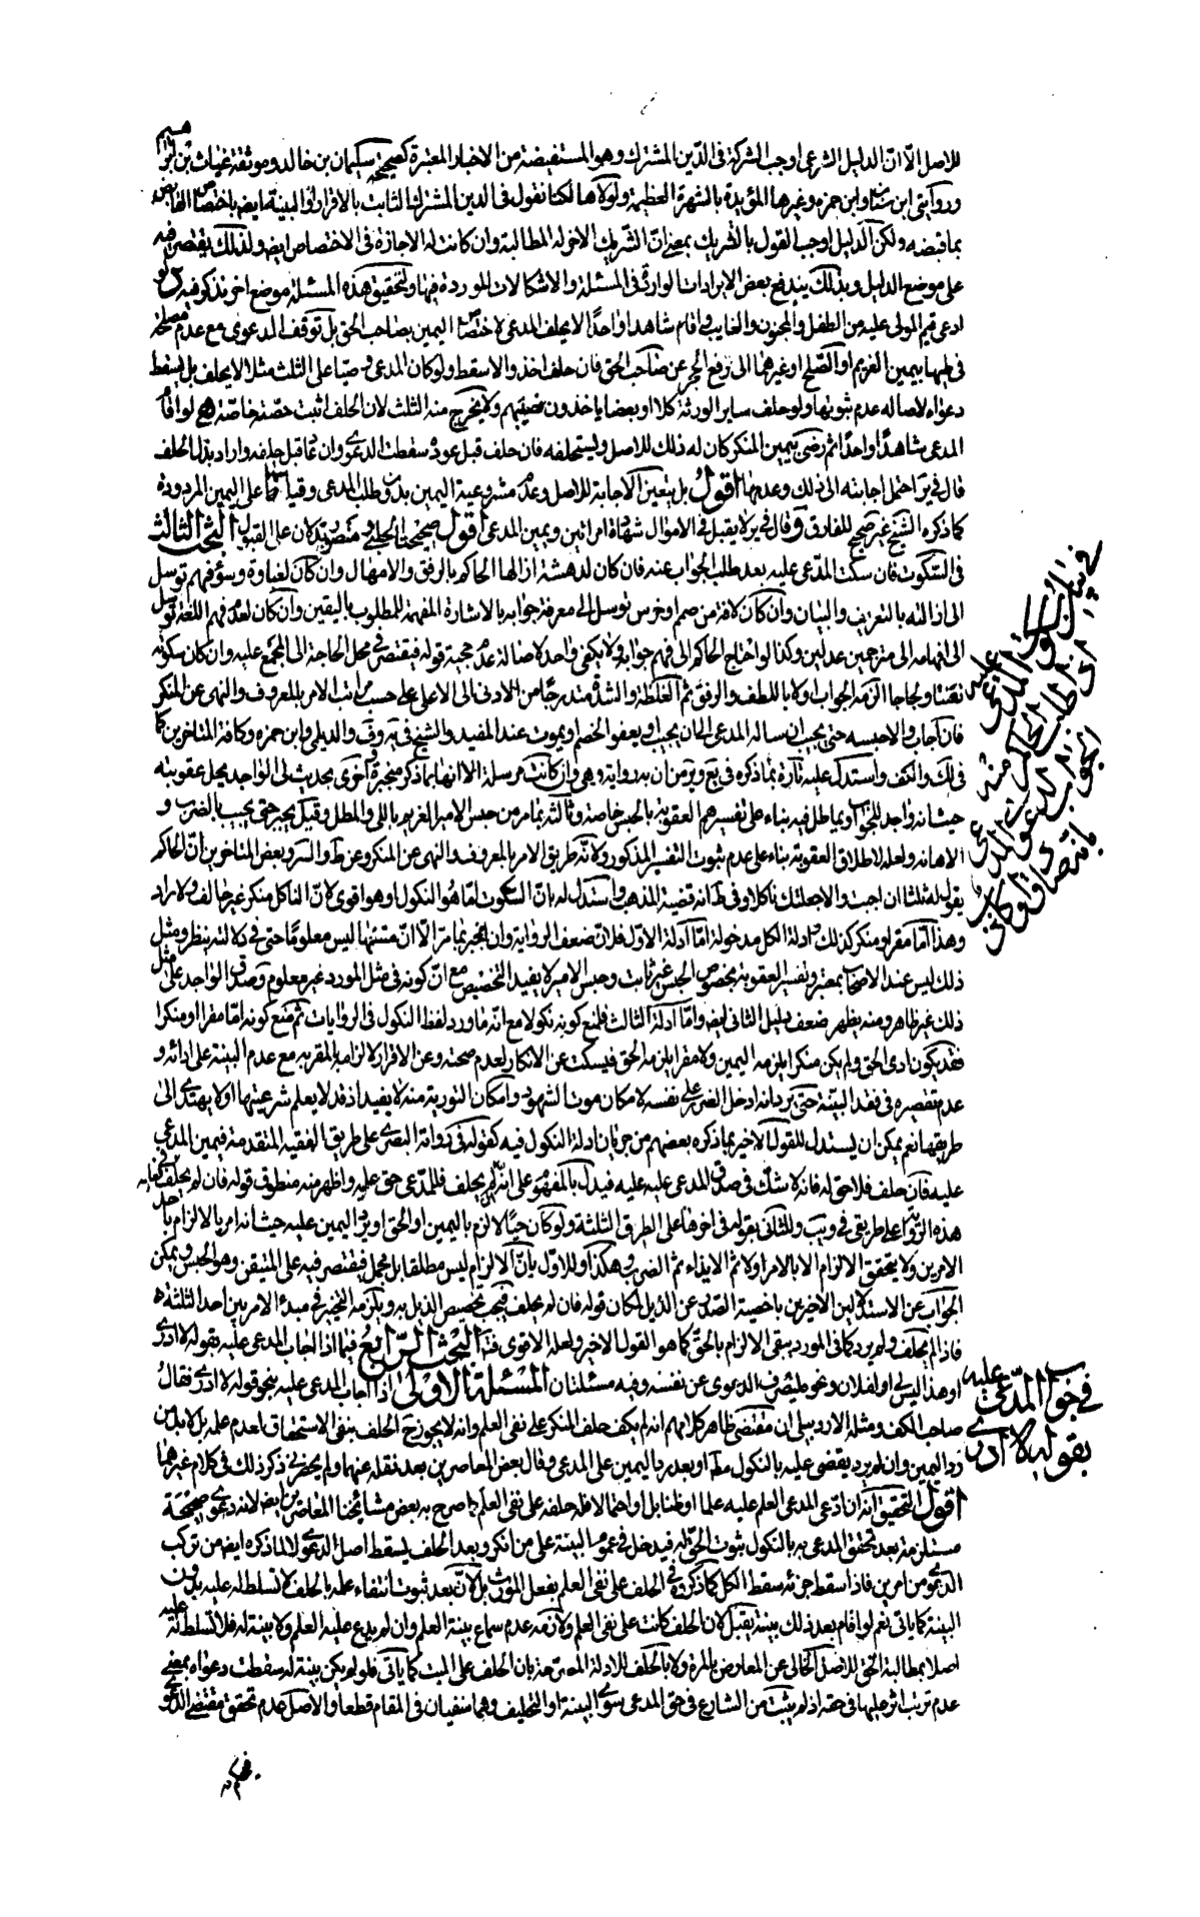 للاصل الّا انّ الدليل الشرعى اوجب الشركة فى الدّين المشترك وهو المستفيضة من الاخبار المعتبرة كصحيحة سليمان بن خالد وموثقة غياث بن ابراهيم
ورواتى ابن سنان وابن حمزه وغيرها المؤيدة بالشهرة العظيمة ولولاها لكنا نقول فى الدين المشترك الثابت بالاقرار او البينة ايضا باختصاص القابض
بما قبضه ولكن الدليل اوجب القول بالشريك بمعنى انّ الشريك الاخر له المطالبة وان كانت له الاجازة فى الاختصاص ايضا ولذلك يقتصر فيه
على موضع الدليل وبذلك يندفع بعض الايرادات الواردة فى المسئلة والاشكالات الموردة فيها ولتحقيق هذه المسئلة موضع اخر نذكر فيه ولو
ادعى قيم المولى عليه من الطفل والمجنون والغايب واقام شاهدا واحدًا لا يحلف المدعى لاختصاص اليمين بصاحب الحق بل توقف المدعوى مع عدم مصلحة
فى طيها بيمين الغريم او الصّلح او غيرهما الى رفع الحجر عن صاحب الحق فان حلف اخذ والا سقط ولو كان المدعى وصيّا على الثلث مثلا لا يحلف بل يسقط
دعواه لاصاله عدم ثبوتها ولو حلف ساير الورثة كلا او بعضا ياخذون نصيبهم ولا يخرج منه الثلث لان الحلف اثبت حصّته خاصّة لو اقام
المدعى شاهدًا واحدًا ثم رضى بيمين المنكر كان له ذلك للاصل ويستحلفه فان حلف قبل عوده سقطت الدعوى وان عاد قبل حلفه واراد بذل الحلف
قال فى ير احتمل اجابته الى ذلك وعدمها اقول بل يتعين الاجابة للاصل وعدم مشروعية اليمين بدون طلب المدعى وقياسها على اليمين المردودة
كما ذكره الشيخ غير صحيح للفارق وقال فى ير لا يقبل فى الاموال شهادة امراتين ويمين المدعى اقول صحيحتا الحلبى ومنصور تدلان على القبول البحث الثالث
فى السّكوت فان سكت المدّعى عليه بعد طلب الجواب عنه فان كان لدهشة ازالها الحاكم بالرفق والامهال وان كان لغباوة وسوء فهم توسل
الى ازالته بالتعريف والبيان وان كان لافة من صمم او خرس توسل الى معرفة جوابه بالاشارة المفهمة للمطلوب باليقين وان كان لعدم فهم اللغة توسل
الى افهامه الى مترجمين عدلين وكذا لو احتاج الحاكم الى فهم جوابه ولا يكفى واحد لاصالة عدم حجية قوله فيقتصر فى محل الحاجة الى المجمع عليه وان كان سكوته
تعنتا ولجاجا الزمه الجواب اولا باللطف والرفق ثم الغلظة والشدة متدرجًا من الادنى الى الاعلى على حسب مراتب الامر بالمعروف والنهى عن المنكر
فان اجاب والا حبسه حتى يجيب ان ساله المدعى الى ان يجيب او يعفو الخصم او يموت عند المفيد والشيخ فى يه وف والديلمى وابن حمزه وكافة المتاخرين كما
فى لك والكف واستدل عليه تارة بما ذكره فى يع وير من ان به رواية وهى وان كانت مرسلة الا انها بما ذكر منجبرة واخرى بحديث لى الواجد يحل عقوبته
حيث انه واجد للجواب ويماطل فيه بناء على تفسيرهم العقوبة بالحبس خاصة وثالثة بما مر من حبس الامير الغريم باللى والمطل وقيل يجبر حتى يجيب بالضرب و
الاهانه ولعله لاطلاق العقوبة بناء على عدم ثبوت التفسير المذكور ولانه طريق الامر بالمعروف والنهى عن المنكر وعن ط والسرائر وبعض المتاخرين انّ الحاكم
يقول له ثلثا ان اجبت والا جعلتك ناكلا وفى ط انه قضية المذهب واستدل له بانّ السّكوت امّا هو النكول او هو اقوى لانّ الناكل منكر غير حالف ولا راد
وهذا امّا مقر او منكر كذلك وادلة الكل مدخولة امّا ادلة الاول فلانّ ضعف الرواية وان انجبر بما مر الّا انّ متنها ليس معلومًا حتى فى دلالته ينظر ومثل
ذلك ليس عند الاصحاب بمعتبر وتفسير العقوبة بخصوص الحبس غير ثابت وحبس الامير لا يفيد التخصيص مع انّ كونه فى مثل المورد غير معلوم وصدق الواجد على مثل
ذلك غير ظاهر ومنه يظهر ضعف دليل الثانى ايضا وامّا ادلة الثالث فلمنع كونه نكولا مع انّه ما ورد لفظ النكول فى الروايات ثم منع كونه امّا مقرا او منكرا
فقد يكون ادى الحق ولم يكن منكرا يلزمه اليمين ولا مقرا يلزمه الحق فيسكت عن الانكار لعدم صحته وعن الاقرار لالزامه بالمقر به مع عدم البينة على ادائه و
عدم تقصيره فى فقد البيّنة حتى يرد انه ادخل الضرر على نفسه لامكان موت الشهود وامكان التورية منه لا يفيد اذ قد لا يعلم شرعيتها او لا يهتدى الى
طريقها نعم يمكن ان يستدل للقول الاخير بما ذكره بعضهم من جريان ادلة النكول فيه كقوله فى رواية البصرى على طريق الفقيه المتقدمة فيمين المدعى
عليه فان حلف فلا حق له فانه لا شك فى صدق المدعى عليه عليه فيدل بالمفهوم على انه ان لم يحلف فللمدّعى حق عليه واظهر منه منطوق قوله فان لم يحلف فعليه فى
هذه الرّواية على طريقى فى ويب وللثانى بقوله فى اخرها على الطرق الثلثة ولو كان حيّا لالزم باليمين او الحق او يرد اليمين عليه حيث انه امر بالالزام باحد
الامرين ولا يتحقق الالزام الا بالامر اولا ثم الايذاء ثم الضرب وهكذا وللاوّل بانّ الالزام ليس مطلقا بل مجمل فيقتصر فيه على المتيقن وهو الحبس ويمكن
الجواب عن الاستدلالين الاخيرين باخصية الصّدر عن الذيل لمكان قوله فان لم يحلف فيجب تخصيص الذيل به ويلزمه التخيير فى مبدء الامر بين احد الثلثة
فاذا لم يحلف ولم يرد كما فى المورد يبقى الالزام بالحق كما هو القول الاخير ولعله الاقوى البحث الرّابع فيما اذا اجاب المدعى عليه بقوله لا ادرى
او هذا ليس لى او لفلان ونحو مما يصرف الدعوى عن نفسه وفيه مسئلتان المسئلة الاولى اذا اجاب المدعى عليه بنحو قوله لا ادرى فقال
صاحب الكف ومثله الاردبيلى ان مقتضى ظاهر كلامهم انه لم يكف حلف المنكر على نفى العلم وانه لا يجوز ح الحلف بنفى الاستحقاق لعدم علمه بل لا بدّ من
رد اليمين وان لم يرد يقضى عليه بالنكول مط او بعد رد اليمين على المدعى وقال بعض المعاصرين بعد نقله عنهما ولم يحضرنى ذكر ذلك فى كلام غيرهما
اقول التحقيق انه ان ادّعى المدعى العلم عليه علما او ظنا بل او احتمالا فله حلفه على نفى العلم كما صرح به بعض مشائخنا المعاصرين ايضا لانه دعوى صحيحة
مستلزمة بعد تحقق المدعى به بالنكول بثبوت الحق له فيدخل فى عموم البينة على من انكر وبعد الحلف يسقط اصل الدعوى لا لما ذكره ايضا من تركب
الدعوى من امرين فاذا سقط جزئه سقط الكل كما ذكروه فى الحلف على نفى العلم بفعل المورث بل لانّ بعد ثبوت انتفاء علمه بالحلف لا تسلط له عليه بدون
البينة كما ياتى نعم لو اقام بعد ذلك بينة يقبل لان الحلف كانت على نفى العلم ولا زمه عدم سماع بينة العلم وان لم يدع عليه العلم ولا بينة له فلا تسلط له عليه
اصلا بمطالبة الحق للاصل الخالى عن المعارض بالمرة ولا بالحلف للادلة المصرّحة بان الحلف على البت كما ياتى فلو لم يكن بينة له سقطت دعواه بمعنى
عدم ترتب اثر عليها فى حقه اذ لم يثبت من الشارع فى حق المدعى سوى البينة او التحليف وهما منفيان فى المقام قطعا والاصل عدم تحقق مقتضى الدعوى
فى بيان سكوت المدعى عليه
اى طلب الحاكم منه
الجواب لدعوى المدعى
فى جواب المدّعى عليه
بقوله لا ادرى